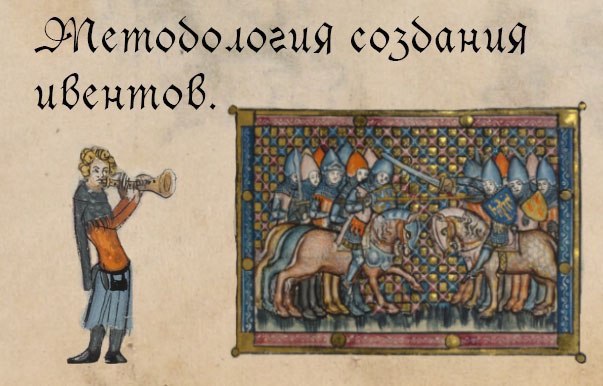 Методология создания
ивентов.